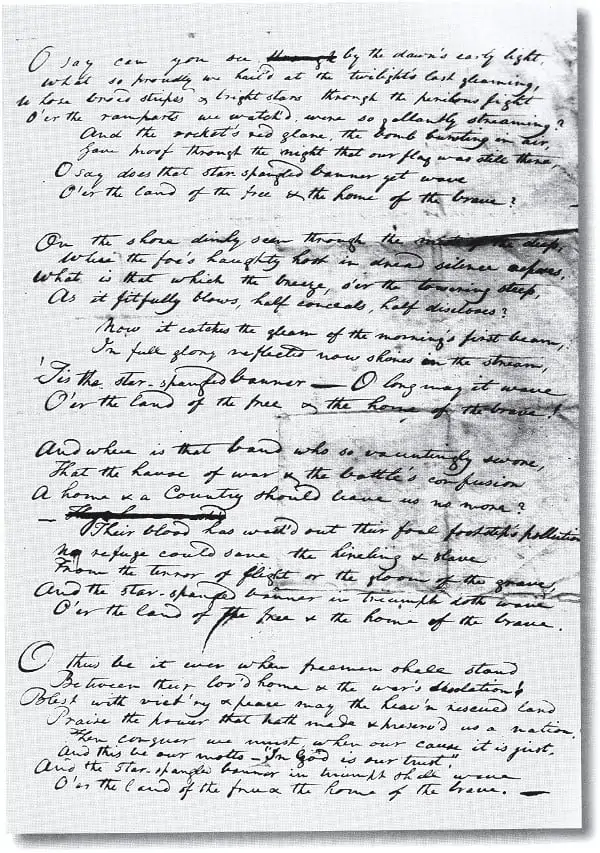 O say can you see ~~through~~ by the dawn's early light,
What so proudly we hail'd at the twilight's last gleaming,
Whose broad stripes & bright stars through the perilous fight
O'er the ramparts we watch'd, were so gallantly streaming?
And the rocket's red glare, the bomb bursting in air,
Gave proof through the night that our flag was still there,
O say does that star-spangled banner yet wave
O'er the land of the free & the home of the brave?
On the shore dimly seen through the mists of the deep,
Where the foe's haughty host in dread silence reposes,
What is that which the breeze, o'er the towering steep,
As it fitfully blows, half conceals, half discloses?
Now it catches the gleam of the morning's first beam,
In full glory reflected now shines in the stream,
'Tis the star-spangled banner — O long may it wave
O'er the land of the free & the home of the brave!
And where is that band who so vauntingly swore,
That the havoc of war & the battle's confusion
A home & a Country should leave us no more?
—
Their blood has wash'd out their foul footstep's pollution
No refuge could save the hireling & slave
From the terror of flight or the gloom of the grave,
And the star-spangled banner in triumph doth wave
O'er the land of the free & the home of the brave.
O thus be it ever when freemen shall stand
Between their lov'd home & the war's desolation!
Blest with vict'ry & peace may the heav'n rescued land
Praise the power that hath made & preserv'd us a nation.
Then conquer we must, when our cause it is just,
And this be our motto — "In God is our trust"
And the star-spangled banner in triumph shall wave
O'er the land of the free & the home of the brave. —